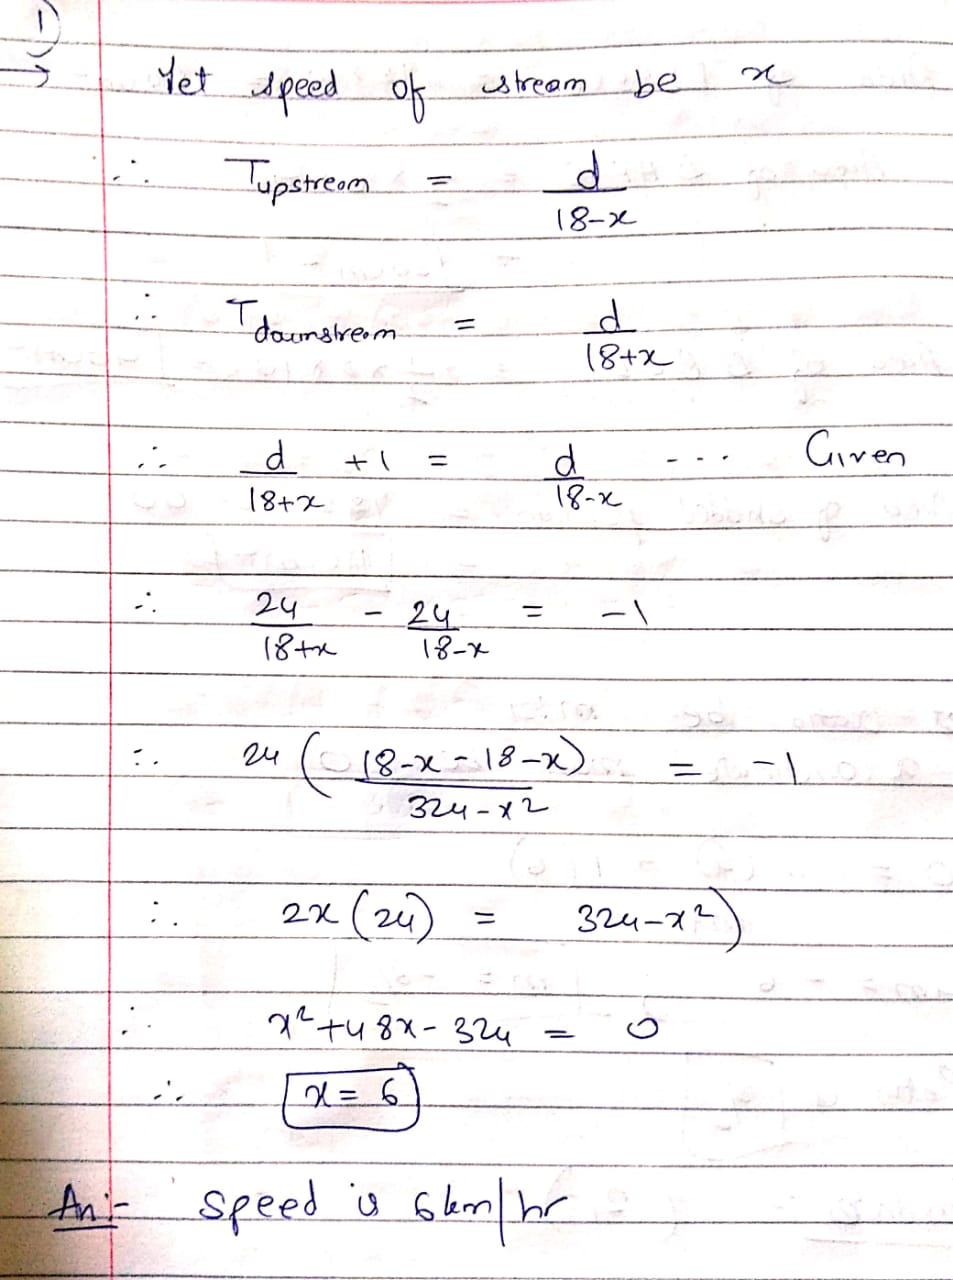 1)
→ Let speed of stream be x
∴ Tupstream = d/18-x
∴ Tdownstream = d/18+x
∴ d/18+x +1 = d/18-x --- Given
∴ 24/18+x - 24/18-x = -1
∴ 24 (18-x-18-x)/324-x² = -1
∴ 2x(24) = 324-x²)
∴ x²+48x-324 = 0
∴ x = 6
An:- speed is 6km/hr